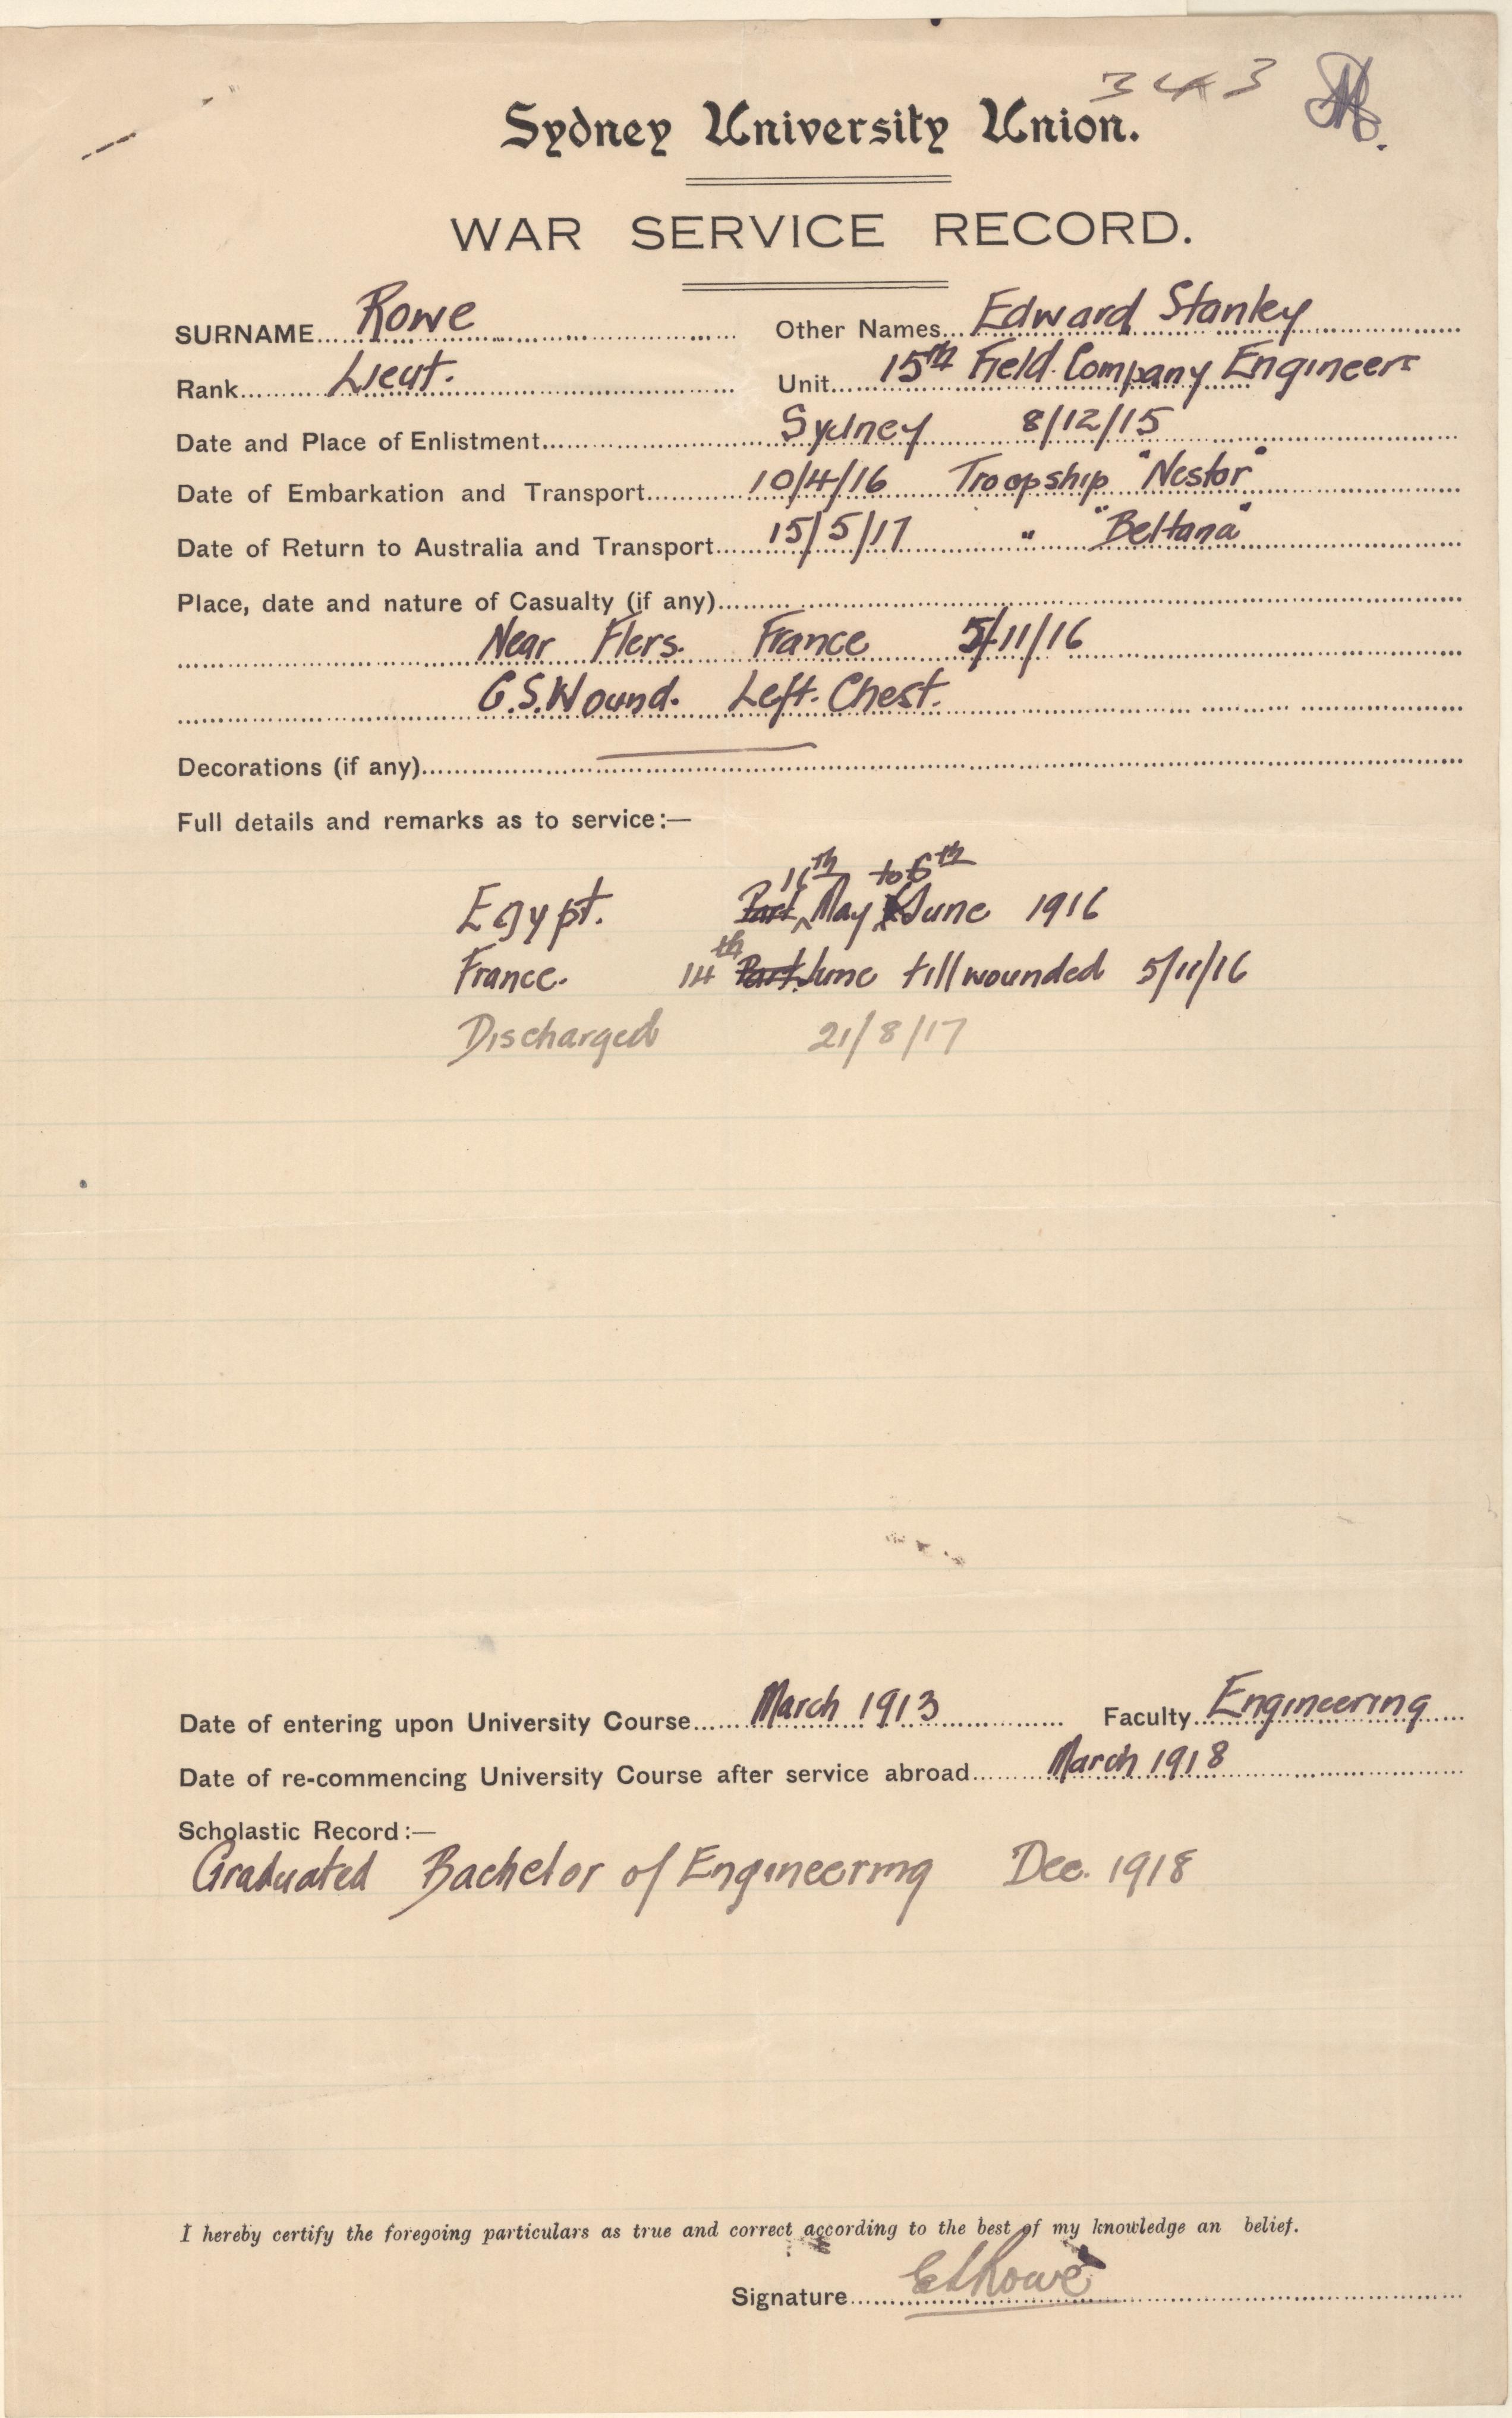 343
Sydney University Union.
WAR SERVICE RECORD.
SURNAME Rowe Other Names Edward Stanley
Rank Lieut. Unit 15th Field Company Engineers
Date and Place of Enlistment Sydney 8/12/15
Date of Embarkation and Transport 10/4/16 Troopship "Nestor"
Date of Return to Australia and Transport 15/5/17 " "Beltana"
Place, date and nature of Casualty (if any)
Near Flers. France 5/11/16
G.S. Wound. Left. Chest.
Decorations (if any)
Full details and remarks as to service:—
Egypt. Part 16th May to 6th June 1916
France. 14th Part June till wounded 5/11/16
Discharged 21/8/17
Date of entering upon University Course March 1913 Faculty Engineering
Date of re-commencing University Course after service abroad March 1918
Scholastic Record:—
Graduated Bachelor of Engineering Dec. 1918
I hereby certify the foregoing particulars as true and correct according to the best of my knowledge an belief.
Signature ESRowe